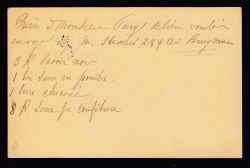 Prière à Monsieur de bien vouloir
envoyer M. 284 Av Brugmann
3 K Savon noir
1 en poudre
1 livre chicorée
8 K Sucre pr confiture